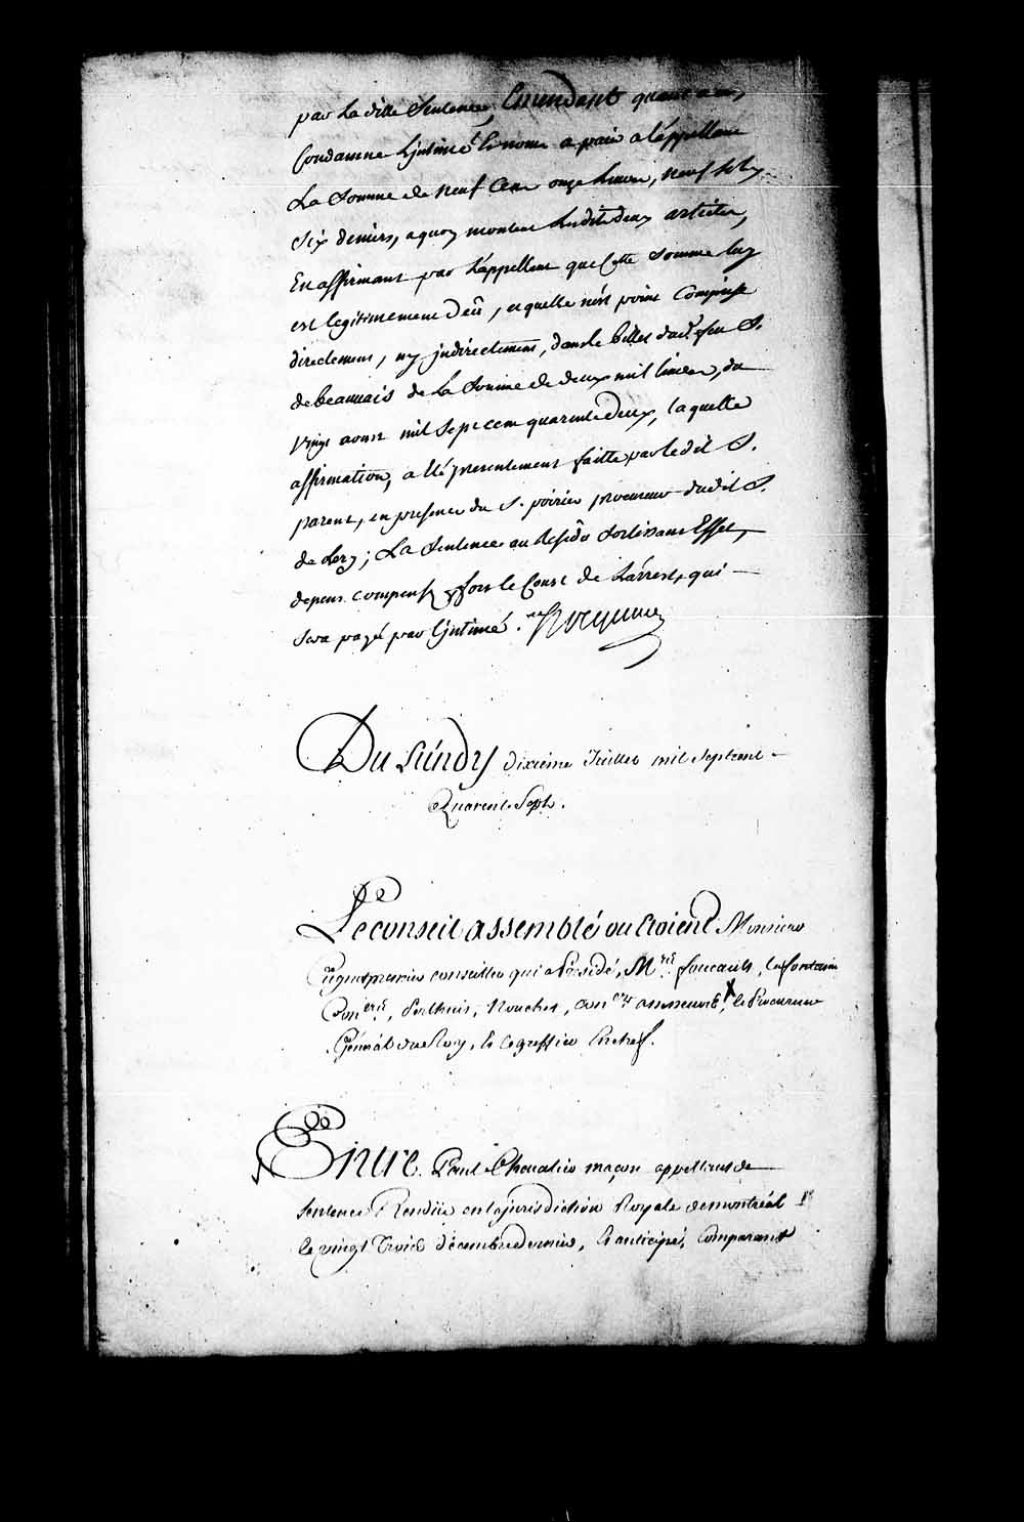 par La ditte Sentence, Emendant quant a ce,
Condamne L'jntimé audit nom a paier a l'appellant
La Somme de neuf Cent onze Livres, neuf sols
Six deniers, a quoy montent Lesdits deux articles,
En affirmant par L'appellant que Cette Somme luy
est legitimement deüe, et quelle n'est point Comprise
directement, ny jndirectement, dans le billet dud. feu S.
de beaumais de La Somme de deux mil livres, du
vingt aoust mil Sept cent quarente deux, laquelle
affirmation, a êté presentement faitte par le dit S.
parent, en presence du S. poirier procureur dudit S.
de Lery; La Sentence au Residu Sortissant Effet,
depens compensés fors le Coust de L'arrest, qui
Sera payé par l'jntimé.
Du Lundy dixieme Juillet mil Septcent
Quarente Sept.
Le conseil assemblé ou Etoient Monsieur
Cugnet premier conseiller qui a Présidé, M.rs foucault, Lafontaine
Con.ers, Perthuis, Nouchet, con.ers assesseurs, le Procureur
Général du Roy, le Greffier En chef.
Entre Paul Chevalier maçon appellant de
Sentence Rendüe en la jurisdiction Royale de montréal
le vingt Trois décembre dernier, Et anticipé, Comparant